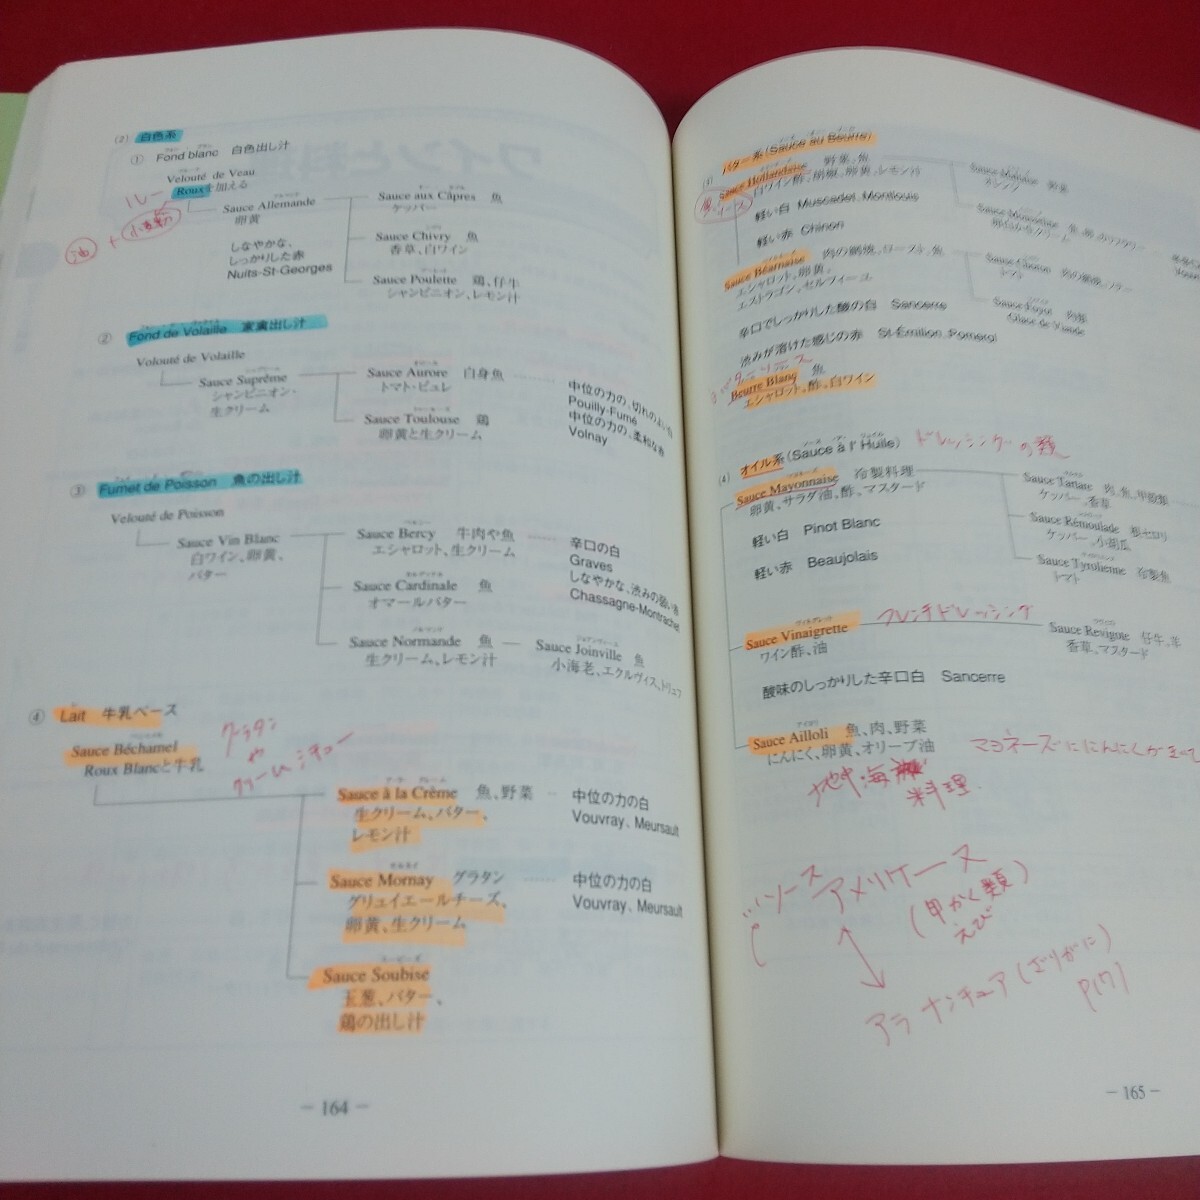 (2) 白色系
① Fond blanc 白色出し汁
Velouté de Veau
Rouxを加える
ルー
油 + 小麦粉
Sauce Allemande
卵黄
しなやかな、
しっかりした赤
Nuits-St-Georges
Sauce aux Câpres 魚
ケッパー
Sauce Chivry 魚
香草、白ワイン
Sauce Poulette 鶏、仔牛
シャンピニオン、レモン汁
② Fond de Volaille 家禽出し汁
Velouté de Volaille
Sauce Suprême
シャンピニオン、
生クリーム
Sauce Aurore 白身魚
トマト・ピュレ
中位の力の、切れのよい白
Pouilly-Fumé
Sauce Toulouse 鶏
卵黄と生クリーム
中位の力の、柔和な赤
Volnay
③ Fumet de Poisson 魚の出し汁
Velouté de Poisson
Sauce Vin Blanc
白ワイン、卵黄、
バター
Sauce Bercy 牛肉や魚
エシャロット、生クリーム
辛口の白
Graves
Sauce Cardinale 魚
オマールバター
しなやかな、渋みの弱い赤
Chassagne-Montrachet
Sauce Normande 魚
生クリーム、レモン汁
Sauce Joinville 魚
小海老、エクルヴィス、トリュフ
④ Lait 牛乳ベース
Sauce Béchamel
Roux Blancと牛乳
グラタン
や
クリームシチュー
Sauce à la Crème 魚、野菜
生クリーム、バター、
レモン汁
中位の力の白
Vouvray、Meursault
Sauce Mornay グラタン
グリュイエールチーズ、
卵黄、生クリーム
中位の力の白
Vouvray、Meursault
Sauce Soubise
玉葱、バター、
鶏の出し汁
－ 164 －
(3) バター系(Sauce au Beurre)
Sauce Hollandaise 野菜、魚
白ワイン酢、胡椒、卵黄、レモン汁
軽い白 Muscadet、Montlouis
軽い赤 Chinon
Sauce Maltaise 野菜
オレンジ
Sauce Béarnaise 肉の網焼、ロースト、魚
エシャロット、卵黄、
エストラゴン、セルフィーユ
辛口でしっかりした酸の白 Sancerre
渋みが溶けた感じの赤 St-Émilion、Pomerol
Sauce Choron
トマト
Sauce Foyot 肉類
Glace de Viande
Beurre Blanc 魚
エシャロット、酢、白ワイン
(4) オイル系(Sauce à l'Huile) ドレッシングの類
Sauce Mayonnaise 冷製料理
卵黄、サラダ油、酢、マスタード
軽い白 Pinot Blanc
軽い赤 Beaujolais
Sauce Tartare 肉、魚、甲殻類
ケッパー、香草
Sauce Rémoulade 根セロリ
ケッパー、小胡瓜
Sauce Tyrolienne 冷製魚
トマト
Sauce Vinaigrette フレンチドレッシング
ワイン酢、油
Sauce Ravigote 仔牛、羊
香草、マスタード
酸味のしっかりした辛口白 Sancerre
Sauce Ailloli 魚、肉、野菜
にんにく、卵黄、オリーブ油
マヨネーズににんにくがまざ
地中海
料理
ソースアメリケーヌ
(甲かく類)
えび
ナンチュア(ざりがに)
P171
－ 165 －